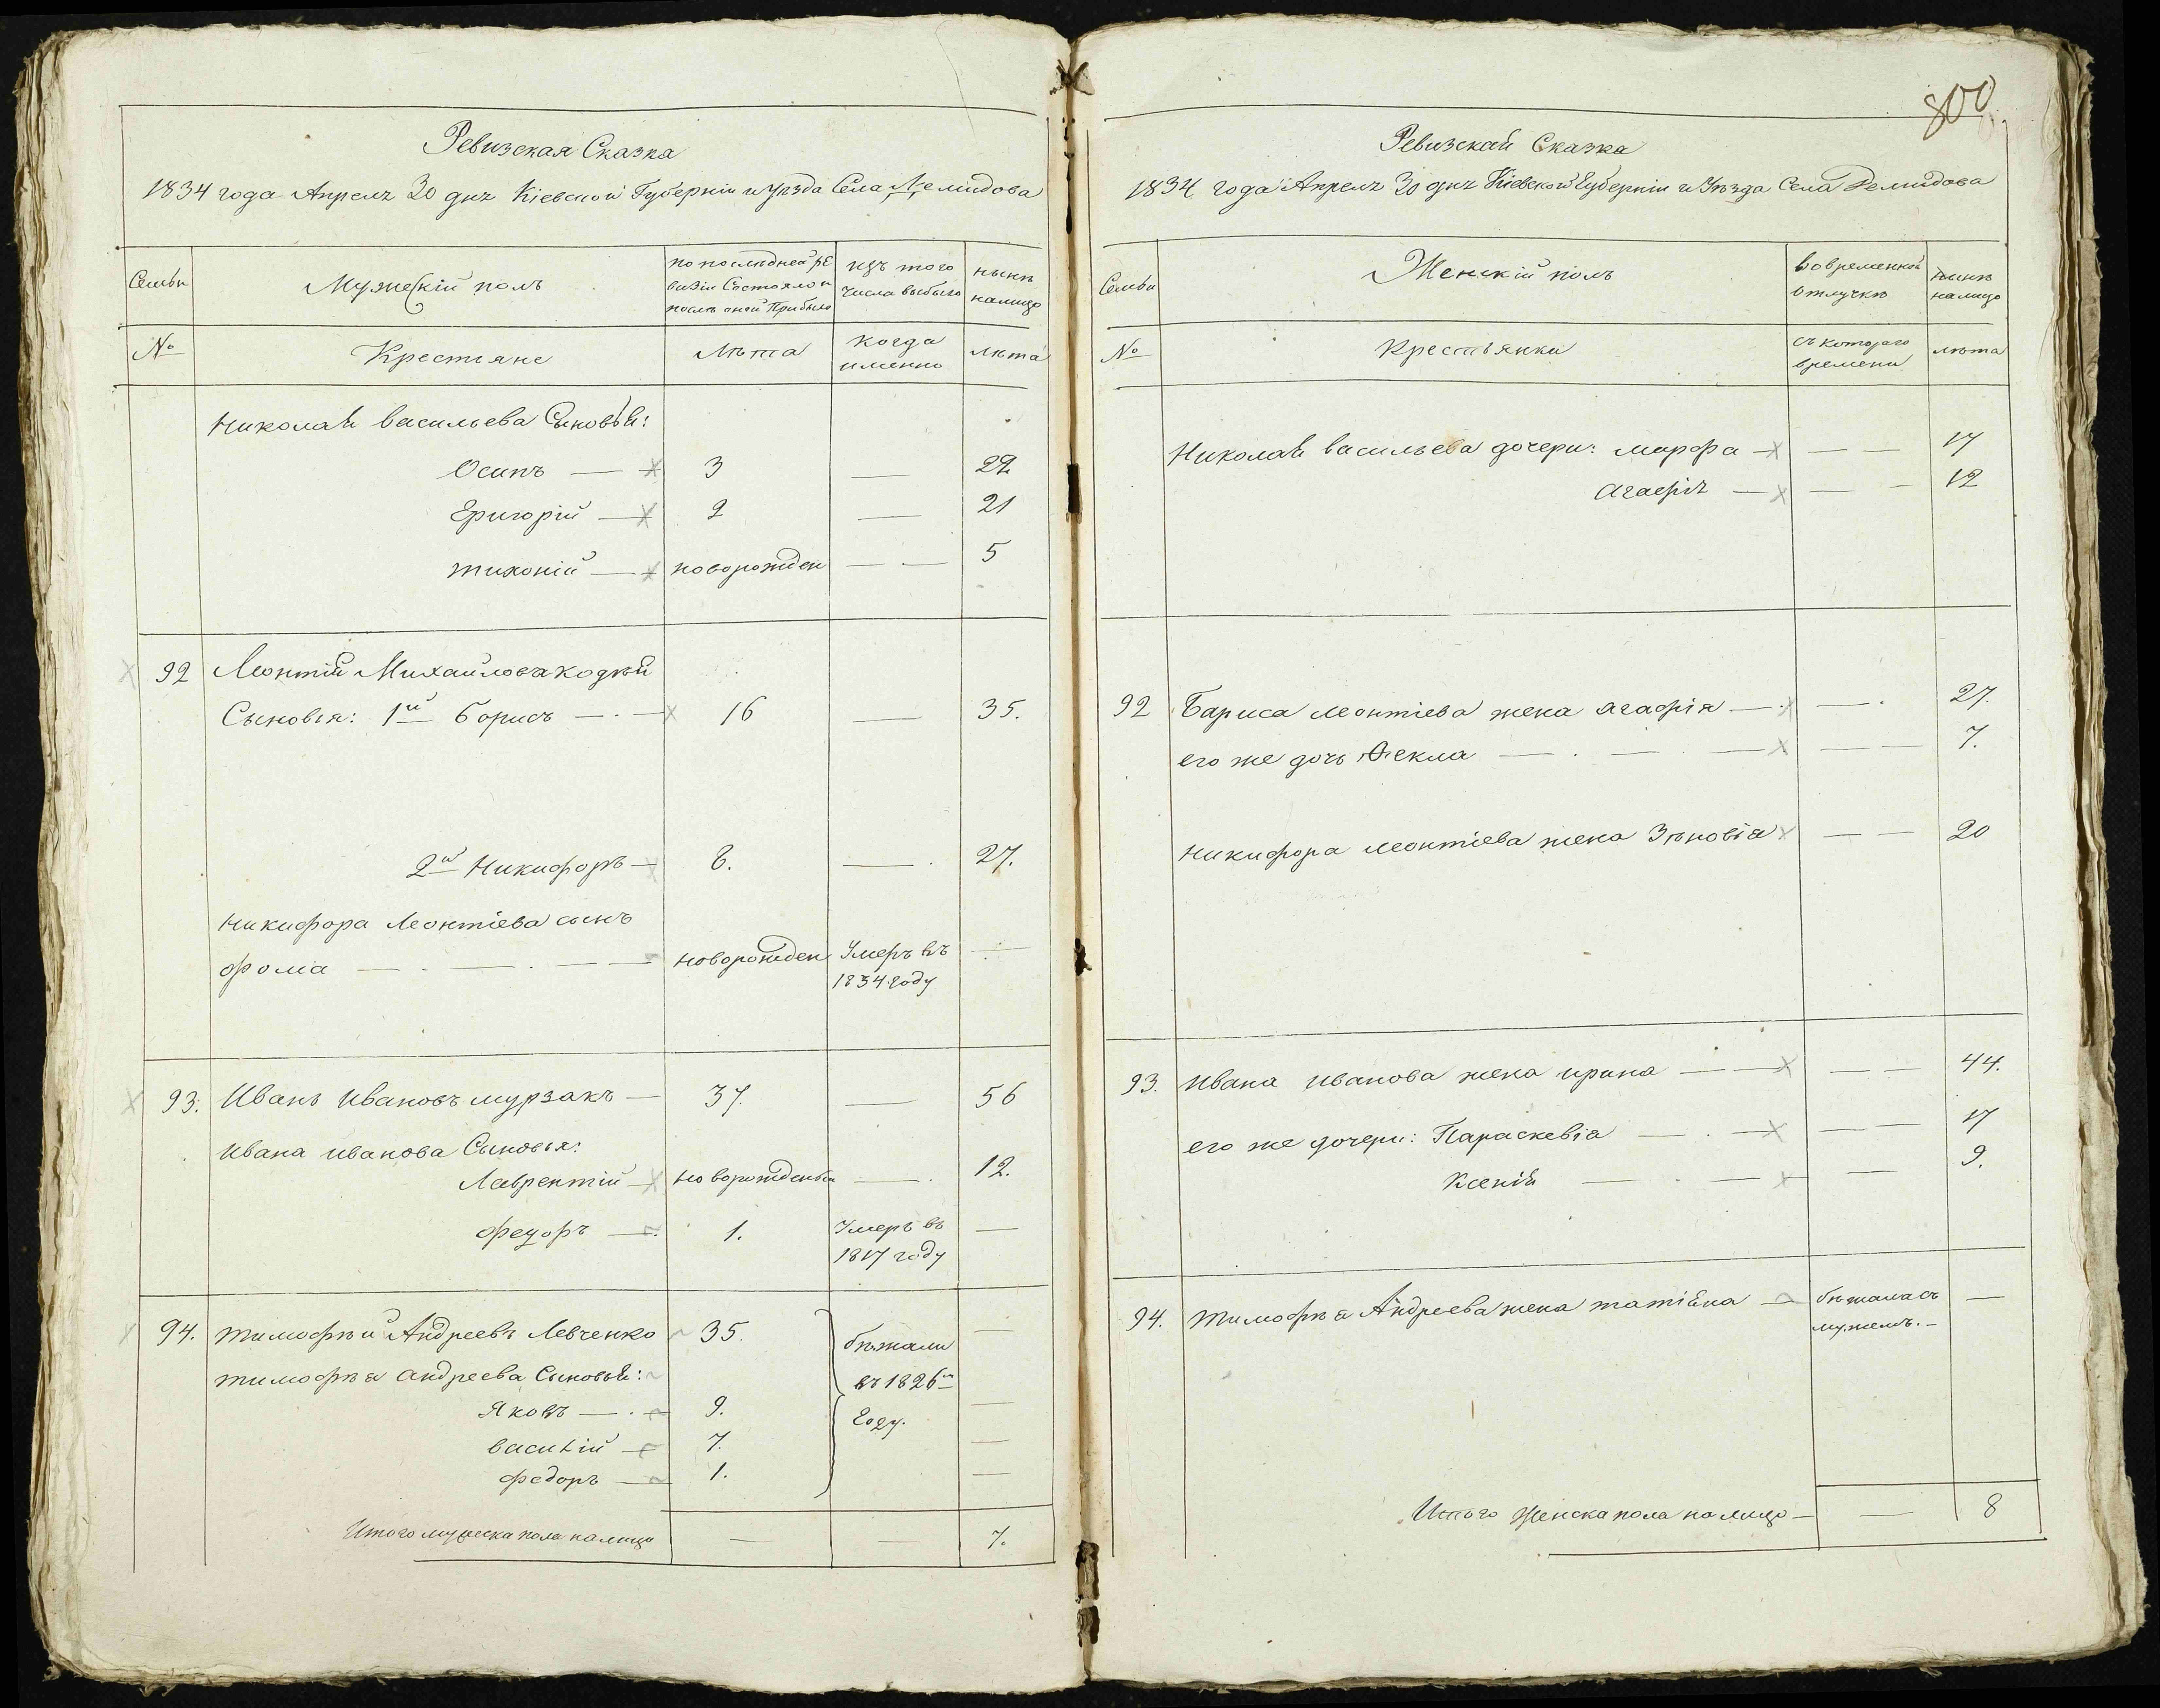 Ревизская Сказка
1834 года Апреля 30 дня Кіевской Губерніи и уѣзда Села Демидова
Семьи
Мужескій полъ
по последней ре
визіи Состояло и
послѣ оной Прибыло
изъ того
числа выбыло
нынѣ
налицо
№
Крестяне
Лѣта
когда
именно
лѣта
Николая васильева Сыновья:
Осипъ — 3 — 22
Григорій — 2 — 21
тихоній — новорожден — — 5
92 Леонтій Михайловъ
Сыновья: 1й борисъ — 16 — 35.
2й Никифоръ — 8. — 27.
Никифора Леонтіева сынъ
фома — новорожден Умеръ въ —
1834 году
93. Иванъ Ивановъ мурзакъ — 37. — 56
Ивана иванова Сыновья:
Лаврентій — новорожденъ — 12.
федоръ — 1. Умеръ въ —
1817 году
94. тимофѣй Андреевъ Левченко 35. бѣжали —
тимофѣя андреева Сыновья: въ 1826м
Яковъ — 9. Году. —
василій — 7. —
федоръ — 1. —
Итого мужеска пола налицо — — 7.
800
Ревизская Сказка
1834 года Апреля 30 дня Кіевской Губерніи и Уѣзда Села Демидова
Семьи
Женскій полъ
Во временной
отлучкѣ
нынѣ
налицо
№
Крестьянки
съ котораго
времени
лѣта
Николая васильева дочери: марфа — — — 17
Агафія — — — 12
92 Бариса леонтіева жена агафія — — 27.
его же дочь Ѳекла — — — 7.
Никифора леонтіева жена Зѣновія — — 20
93. Ивана иванова жена ирина — — — 44.
его же дочери: Параскевія — — — 17
Ксенія — — 9.
94. Тимофѣя Андреева жена татіяна — бѣжала съ —
мужемъ. —
Итого Женска пола налицо — — 8